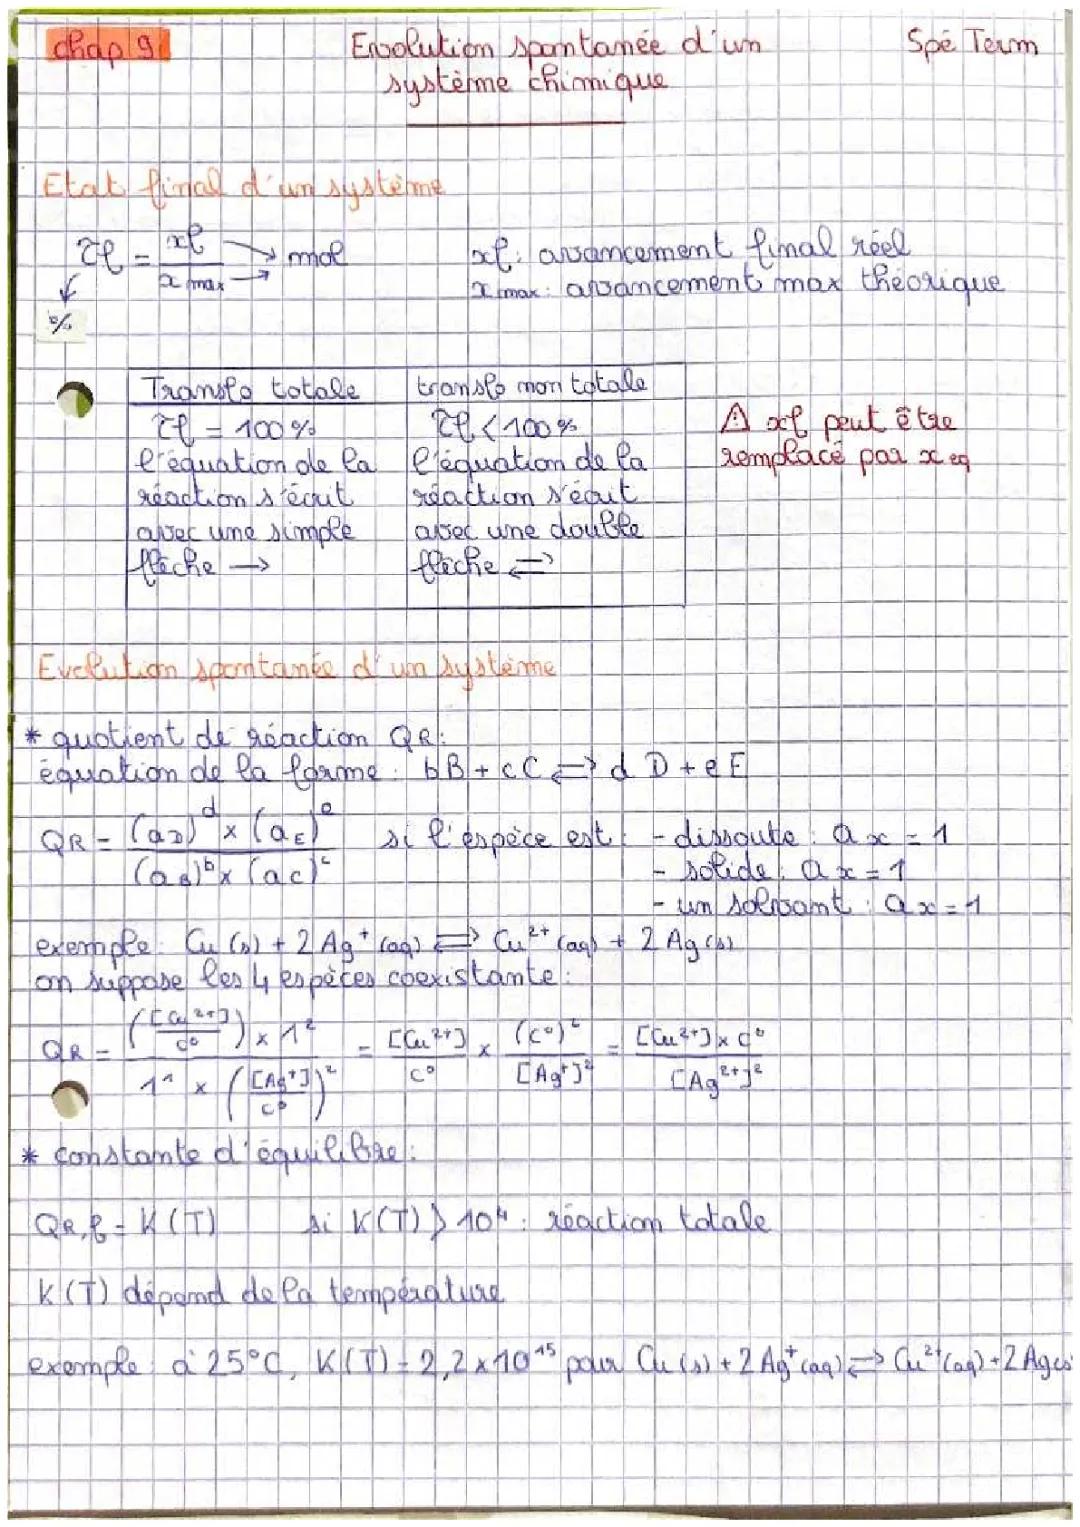 chap 9
Evolution spontanée d'un
système chimique
Spé Term
Etat final d'un système
τf = xf / x max → mol
%
xf : avancement final réel
x max : avancement max théorique
Transfo totale
τf = 100 %
l'équation de la
réaction s'écrit
avec une simple
flèche →
transfo non totale
τf < 100 %
l'équation de la
réaction s'écrit
avec une double
flèche ⇌
⚠ xf peut être
remplacé par x eq
Evolution spontanée d'un système
* quotient de réaction QR :
équation de la forme : bB + cC ⇌ dD + eE
QR = (aD)^d × (aE)^e / (aB)^b × (aC)^c si l'espèce est : - dissoute : ax = 1
- solide : ax = 1
- un solvant : ax = 1
exemple : Cu (s) + 2 Ag⁺ (aq) ⇌ Cu²⁺ (aq) + 2 Ag (s)
on suppose les 4 espèces coexistante :
QR = (([Cu²⁺]/c°) × 1²) / (1¹ × ([Ag⁺]/c°)²) = [Cu²⁺]/c° × (c°)²/[Ag⁺]² = [Cu²⁺] × c°/[Ag²⁺]²
* constante d'équilibre :
QR,f = K(T) si K(T) > 10⁴ : réaction totale
K(T) dépend de la température
exemple : à 25°C, K(T) = 2,2 × 10¹⁵ pour Cu (s) + 2 Ag⁺ (aq) ⇌ Cu²⁺ (aq) + 2 Ag(s)